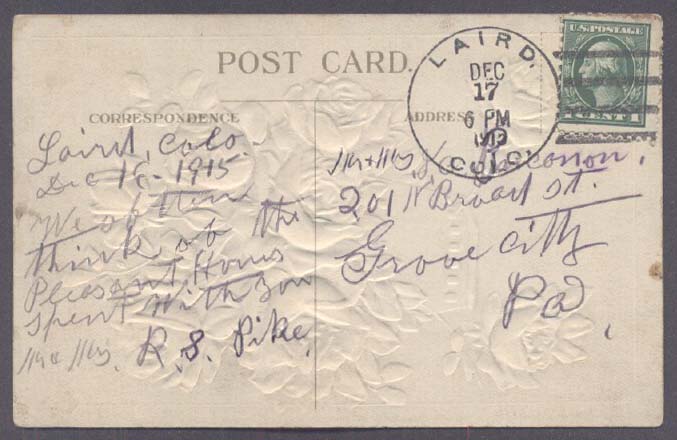 POST CARD.
CORRESPONDENCE
ADDRESS
LAIRD.
DEC
17
6 PM
COLO.
U.S. POSTAGE
CENT 1
Laird, Colo.
Dec 16-1915.
We often
think of the
Pleasant Hours
Spent With you
Mr & Mrs. R. S. Pike.
Mr & Mrs
201 N Broad St.
Grove City
Pa.